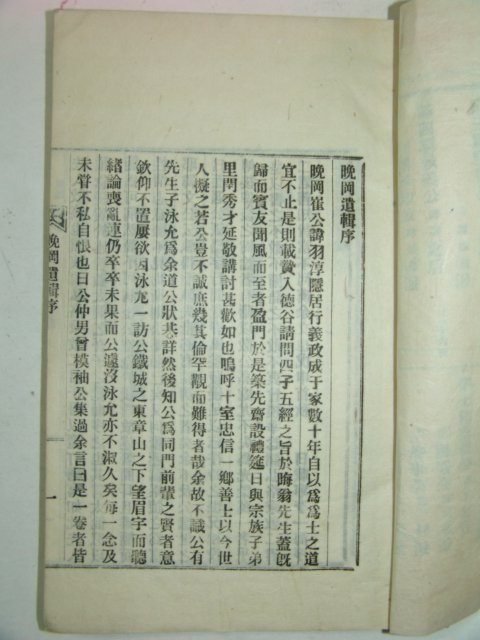 晚岡遺輯序
晚岡崔公諱羽淳隱居行義政成于家數十年自以爲爲士之道
宜不止是則載贄入德谷請問四子五經之旨於晦翁先生蓋旣
歸而賓友聞風而至者盈門於是築先齋設禮筵日與宗族子弟
里閈秀才延敬講討甚歡如也嗚呼十室忠信一鄉善士以今世
人擬之若公豈不誠庶幾其倫罕覯而難得者哉余故不識公有
先生子泳允爲余道公狀甚詳然後知公爲同門前輩之賢者意
欽仰不置屢欲因泳允一訪公鐵城之東章山之下望眉字而聽
緖論喪亂連仍卒卒未果而公遽沒泳允亦不淑久矣每一念及
未嘗不私自恨也日公仲男曾模袖公集過余言曰是一卷者皆
晚岡遺輯序
一